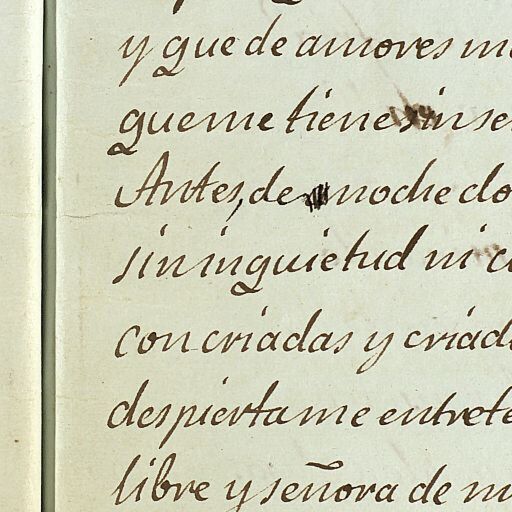 y que de amores
que me tiene sin
Antes, de noche
sin inquietud ni
con criadas y
despierta me
libre y señora de